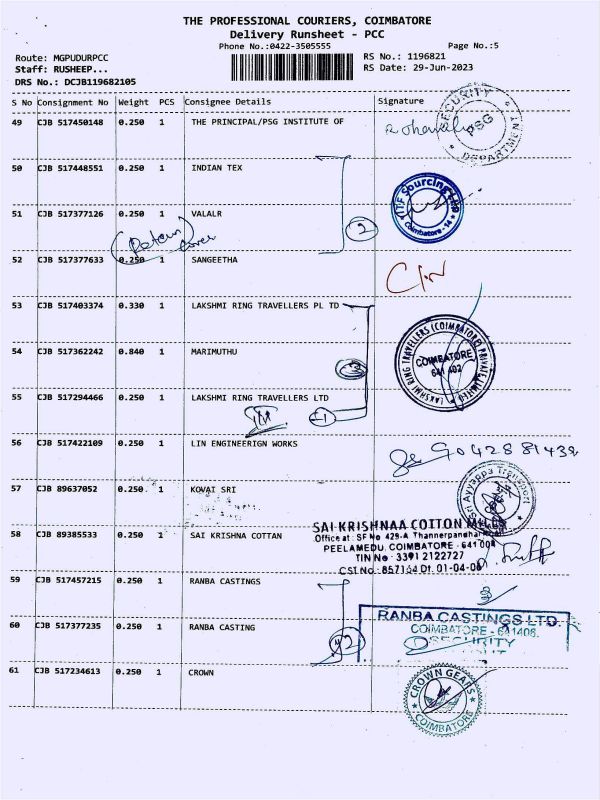 THE PROFESSIONAL COURIERS, COIMBATORE
Delivery Runsheet - PCC
Phone No.:0422-3505555
Page No.:5
Route: MGPUDURPCC
RS No.: 1196821
Staff: RUSHEEP...
RS Date: 29-Jun-2023
DRS No.: DCJB119682105
S No Consignment No Weight PCS Consignee Details Signature
49 CJB 517450148 0.250 1 THE PRINCIPAL/PSG INSTITUTE OF
SECURITY PSG DEPARTMENT
50 CJB 517448551 0.250 1 INDIAN TEX
YITF Sourcing LTD Coimbatore-14
51 CJB 517377126 0.250 1 VALALR
2
cover
52 CJB 517377633 0.250 1 SANGEETHA
53 CJB 517403374 0.330 1 LAKSHMI RING TRAVELLERS PL TD
LAKSHMI RING TRAVELLERS (COIMBATORE) PRIVATE LIMITED
COIMBATORE
641 402
54 CJB 517362242 0.840 1 MARIMUTHU
55 CJB 517294466 0.250 1 LAKSHMI RING TRAVELLERS LTD
56 CJB 517422109 0.250 1 LIN ENGINEERIGN WORKS
57 CJB 89637052 0.250 1 KOVAI SRI
Sri Ayyappa Transport
58 CJB 89385533 0.250 1 SAI KRISHNA COTTAN
SAI KRISHNAA COTTON MILLS
Office at: SF No 429-A Thannerpandhal
PEELAMEDU, COIMBATORE - 641 004
TIN No : 3391 2122727
CST No : 857164 Dt. 01-04-
59 CJB 517457215 0.250 1 RANBA CASTINGS
60 CJB 517377235 0.250 1 RANBA CASTING
RANBA CASTINGS LTD.
COIMBATORE - 641406.
SECURITY
61 CJB 517234613 0.250 1 CROWN
CROWN GEARS COIMBATORE